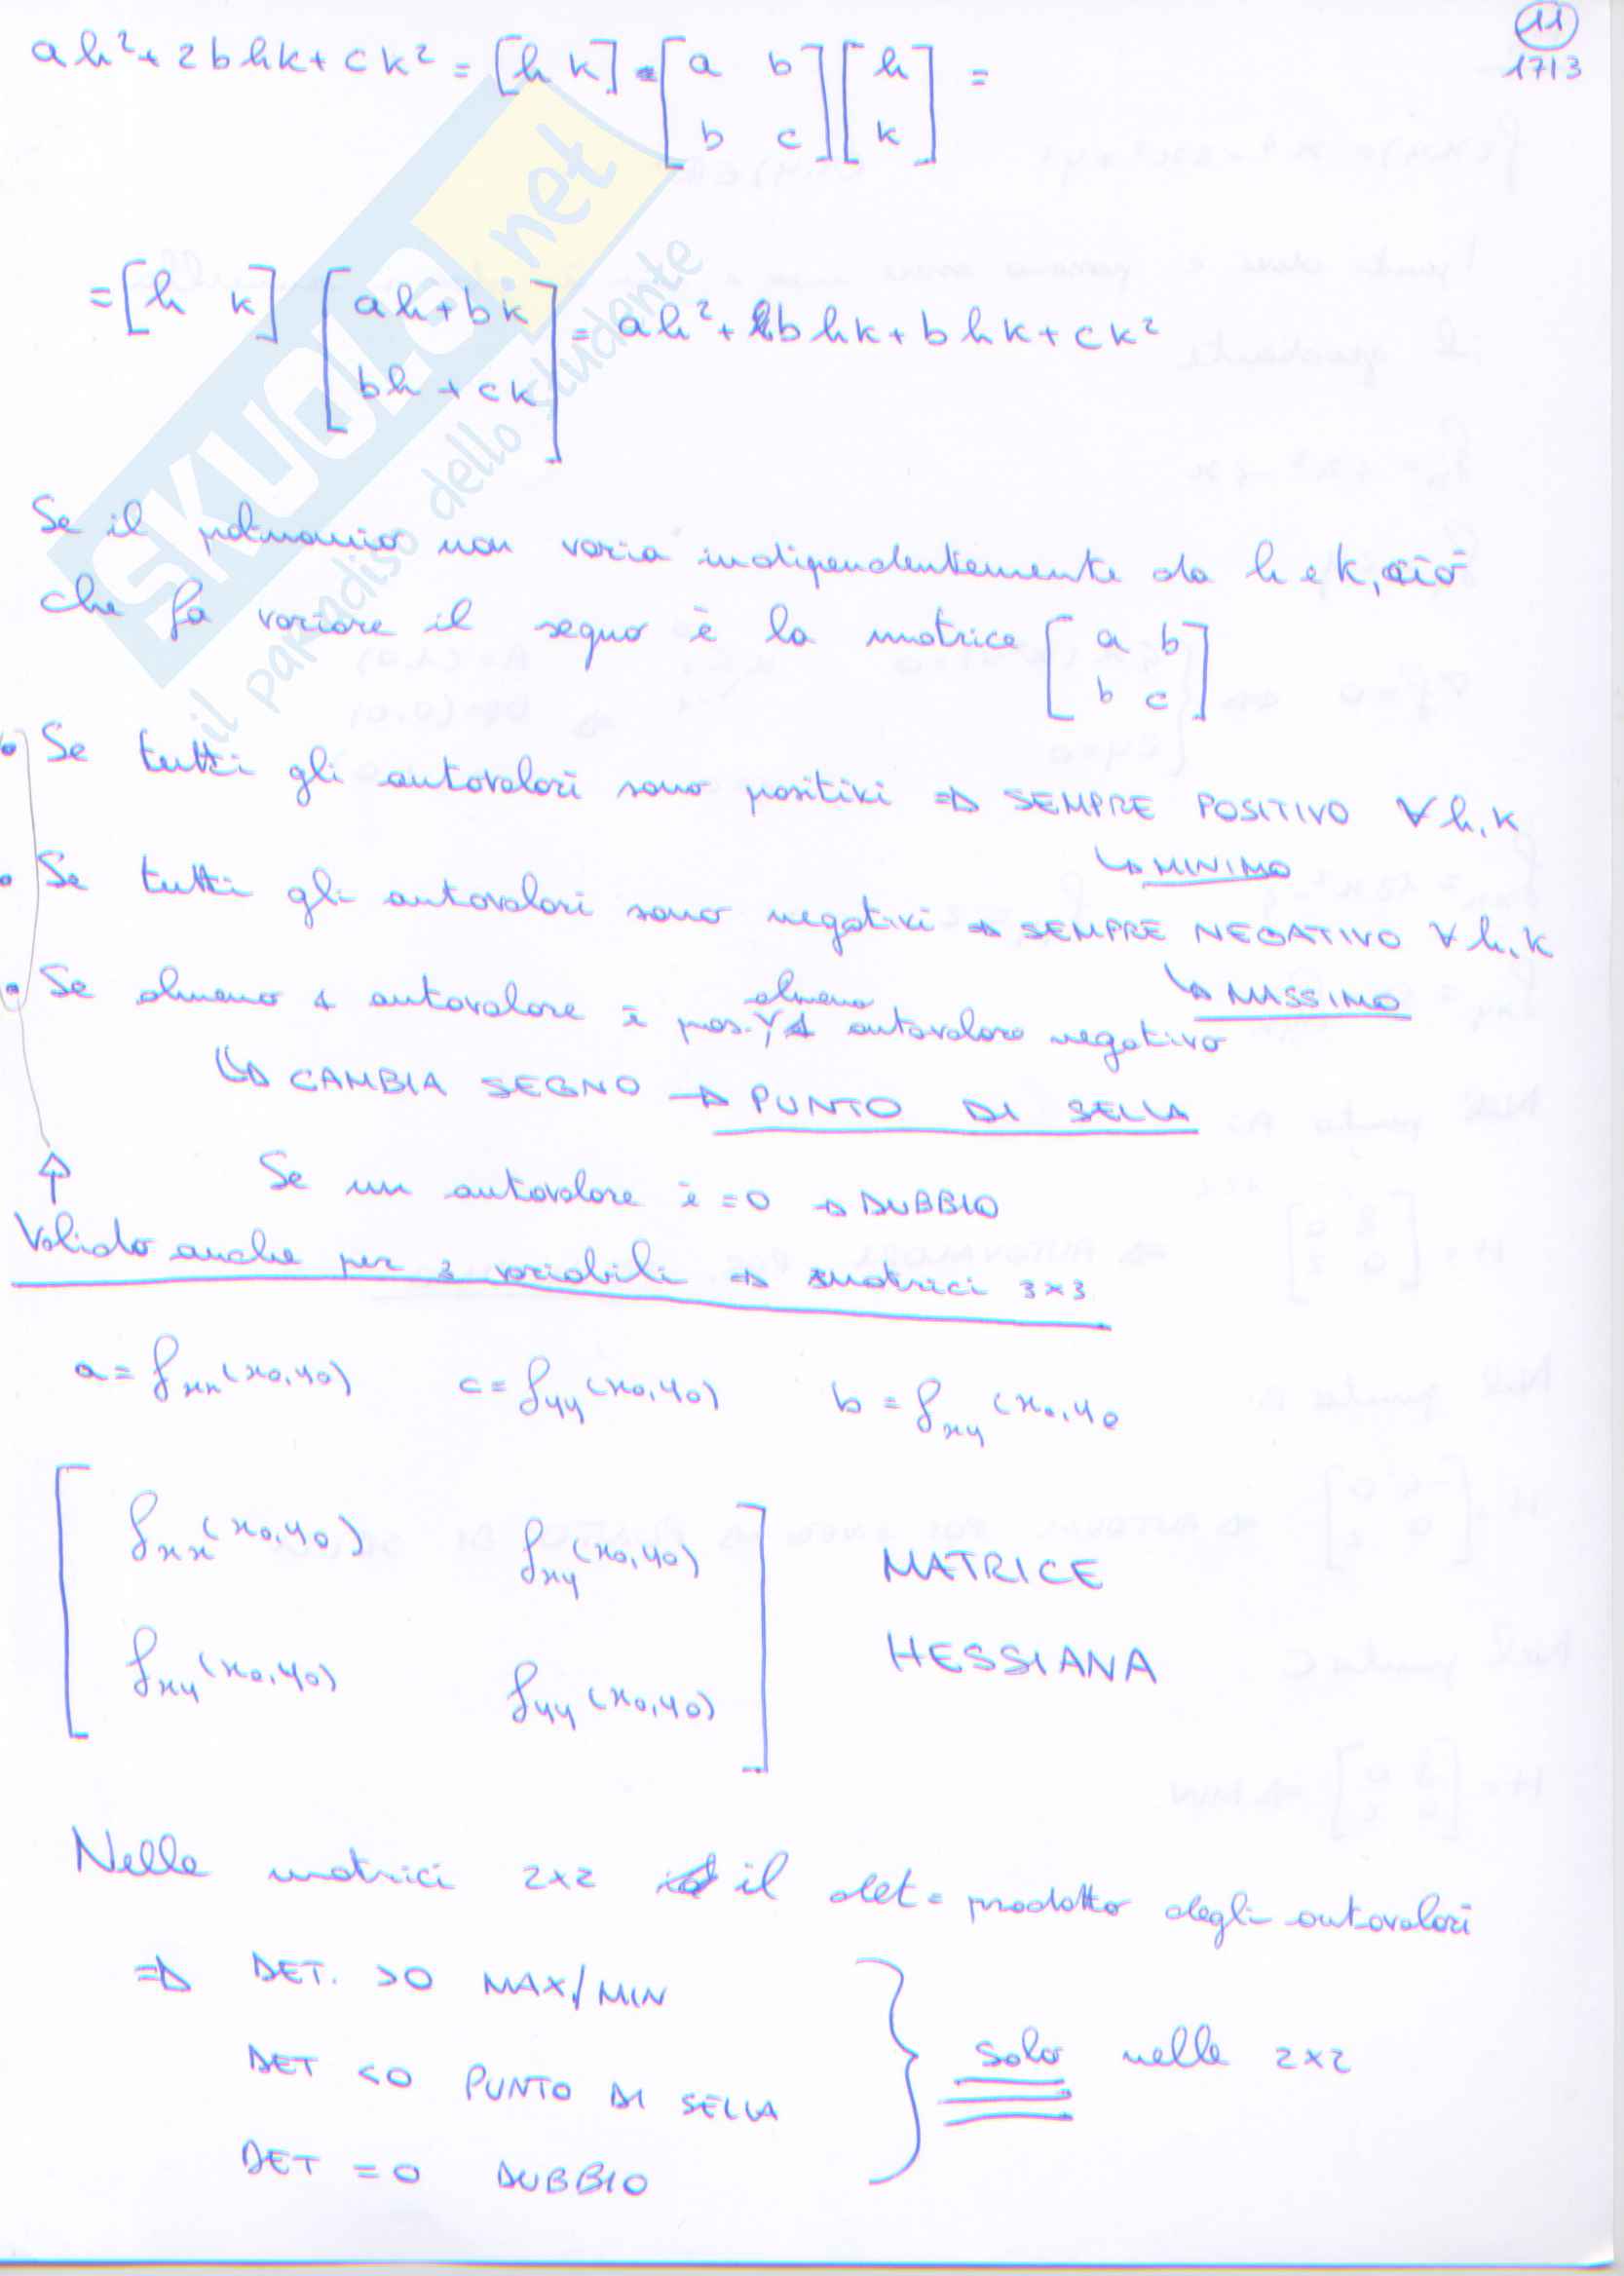 11
17/3
ah² + 2bhk + ck² = [h k] · [a b; b c] [h; k] =
= [h k] [ah + bk; bh + ck] = ah² + bhk + bhk + ck²
Se il polinomio non varia indipendentemente da h e k, ciò
che fa variare il segno è la matrice [a b; b c]
• Se tutti gli autovalori sono positivi ⇒ SEMPRE POSITIVO ∀ h, k
↳ MINIMO
• Se tutti gli autovalori sono negativi ⇒ SEMPRE NEGATIVO ∀ h, k
↳ MASSIMO
• Se almeno 1 autovalore è pos. / almeno 1 autovalore negativo
↳ CAMBIA SEGNO → PUNTO DI SELLA
Se un autovalore è = 0 → DUBBIO
Valido anche per 3 variabili ⇒ matrici 3×3
a = fxx(x0,y0) c = fyy(x0,y0) b = fxy(x0,y0
[fxx(x0,y0) fxy(x0,y0)
fxy(x0,y0) fyy(x0,y0)]
MATRICE
HESSIANA
Nelle matrici 2×2 il det = prodotto degli autovalori
⇒ DET. >0 MAX/MIN
DET <0 PUNTO DI SELLA
DET = 0 DUBBIO
solo nelle 2×2
SKUOLA.net
il paradiso dello studente